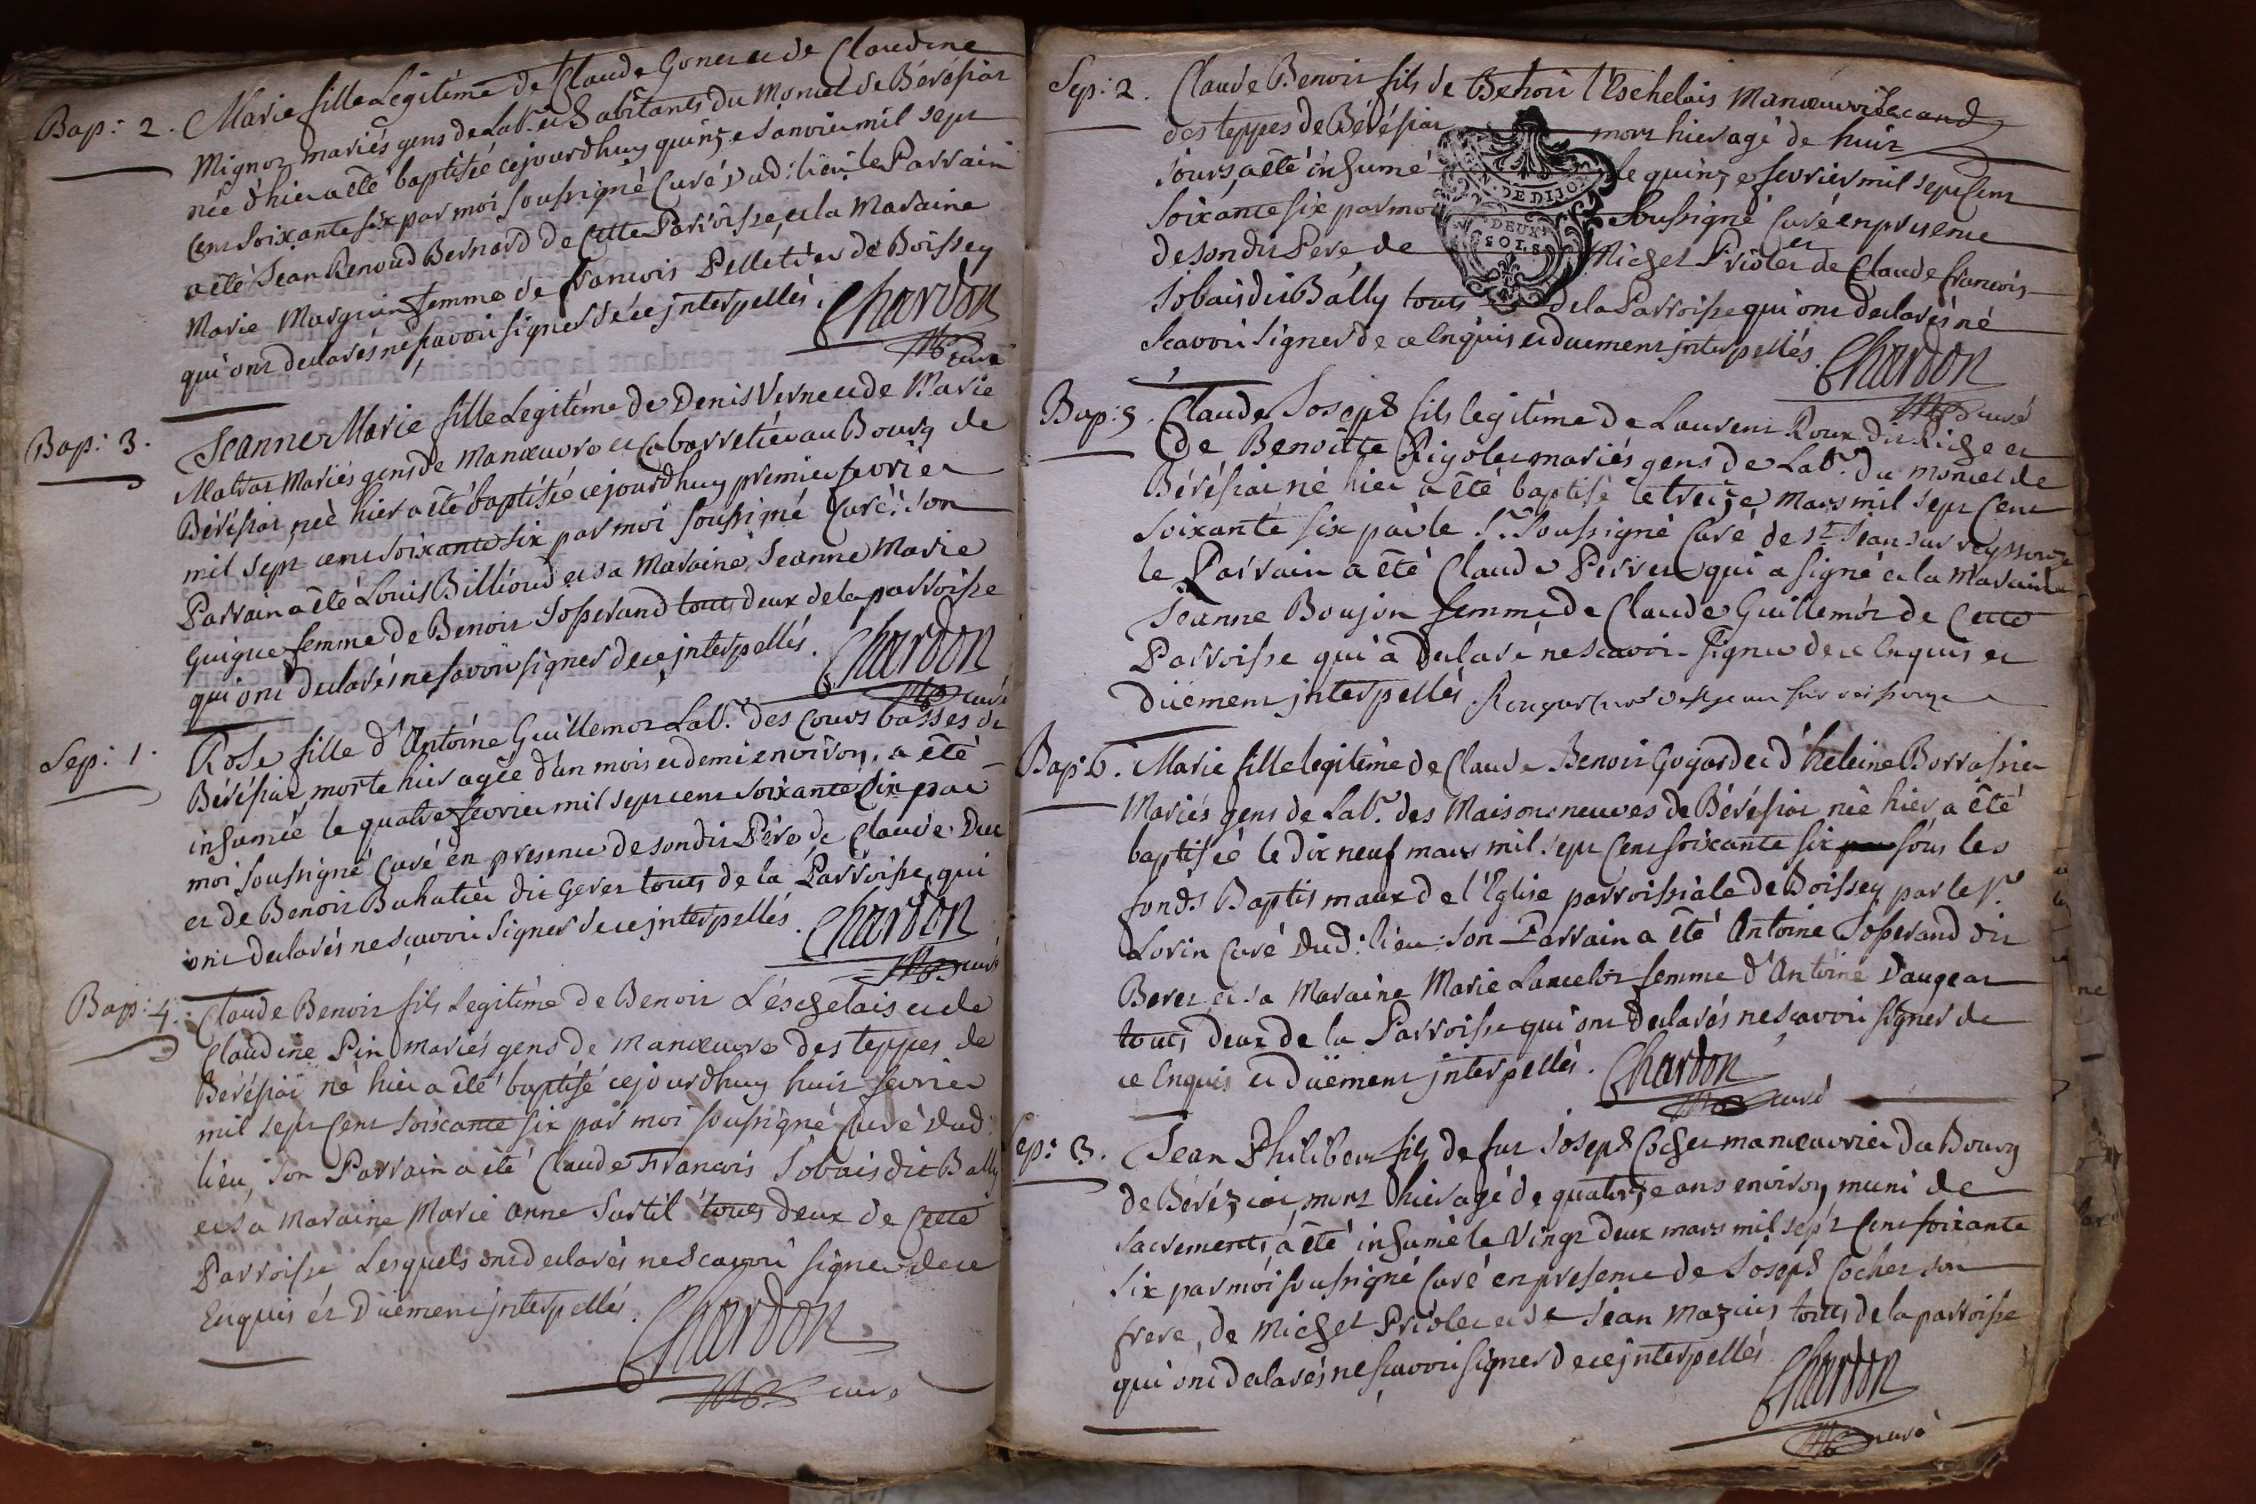 Bap: 2. Marie fille Legitime de Claude Gonet et de Claudine
Mignot mariés gens de Lab.r et habitants du Moncel de Béréſiat
née d'hier a été baptisée cejourdhuy quinze Janvier mil sept
cent Soixante six par moi soussigné Curé dud: lieu le Parrain
a été Jean Renoud Bernard de Cette Parroisse, et la Maraine
Marie Marguin femme de francois Pelletier de Boissey
qui ont declarés ne sçavoir signer de ce interpellés. Chardon
curé
Bap: 3. Jeanne Marie fille Legitime de Denis Verne et de Marie
Mariés gens de Manœuvre et Cabarretier au Bourg de
Béréſiat, née hier a été baptisée cejourdhuy premier fevrier
mil sept cent soixante six par moi soussigné Curé: son
Parrain a été Louis Billioud et sa Maraine Jeanne Marie
Guigue femme de Benoit Josserand touts deux de la parroisse
qui ont declarés ne savoir signer de ce interpellés. Chardon
curé
Sep: 1. Rose fille d'Antoine Guillemot Lab.r des Cours basses de
Béréſiat, morte hier agée d'un mois et demi environ, a été
inhumée le quatre fevrier mil sept cent soixante six par
moi soussigné Curé en presence de sondit Pére, de Claude Duc
et de Benoit Buhatier dit Geret touts de la Parroisse, qui
ont declarés ne sçavoir signer de ce interpellés. Chardon
curé
Bap: 4. Claude Benoit fils Legitime de Benoit L'éschelais et de
Claudine Pin mariés gens de manœuvre des teppes de
Béréſiat né hier a été baptisé cejourdhuy huit fevrier
mil sept Cent soixcante six par moi soussigné Curé dud:
lieu, son Parrain a été Claude François Jobais dit Bally
et sa Maraine Marie Anne Surtil touts deux de Cette
Parroisse Lesquels ont declarés ne Scavoir signer de ce
Enquis et Düement interpellés. Chardon
curé
Sep: 2. Claude Benoit fils de Benoit l'Eschelais Manœuvrier
des teppes de Béréſiat mort hier agé de huit
Jours, a été inhumé le quinze fevrier mil sept Cent
Soixante six par moi Soussigné Curé en presence
de sondit Pere, de Michel Priolet et de Claude francois
Jobais dit Bally touts de la Parroisse qui ont declarés ne
Scavoir signer de ce Enquis et duement interpellés. Chardon
curé
GEN. DE DIJON
DEUX
SOLS
Bap: 5. Claude Joseph fils legitime de Laurent Roux dit Riche et
de Benoitte Rigolet mariés gens de Lab.r du moncel de
Béréſiat né hier a été baptisé le treize Mars mil sept Cent
soixante six par le S.r Soussigné Curé de S.t Jean sur reyssouze
le Parrain a été Claude Perret qui a signé et la Maraine
Jeanne Boujon femme de Claude Guillemot de Cette
Parroisse qui a declaré ne scavoir signer de ce Enquis et
Düement interpellés. curé de st jean sur reissouze
Bap: 6. Marie fille legitime de Claude Benoit Goyard et d'heleine Borrassier
Mariés gens de Lab.r des Maisons neuves de Béréſiat née hier, a été
baptisée le dix neuf mars mil sept Cent soixante six sous les
fonds Baptismaux de l'Eglise parroissiale de Boissey par le S.r
Lorin Curé dud: lieu: son Parrain a été Antoine Josserand dit
Beret et sa Maraine Marie Lancelot femme d'Antoine Daugeat
touts deux de la Parroisse qui ont declarés ne scavoir signer de
ce Enquis et Düement interpellés. Chardon
curé
Sep: 3. Jean Philibert fils de fut Joseph Cochet manœuvrier du Bourg
de Béréziat, mort hier agé de quatorze ans environ muni de
Sacrements, a été inhumé le Vingt deux mars mil sept Cent soixante
six par moi soussigné Curé en presence de Joseph Cochet son
frere, de Michel Priolet et de Jean Mazuis touts de la parroisse
qui ont declarés ne scavoir signer de ce interpellés Chardon
curé